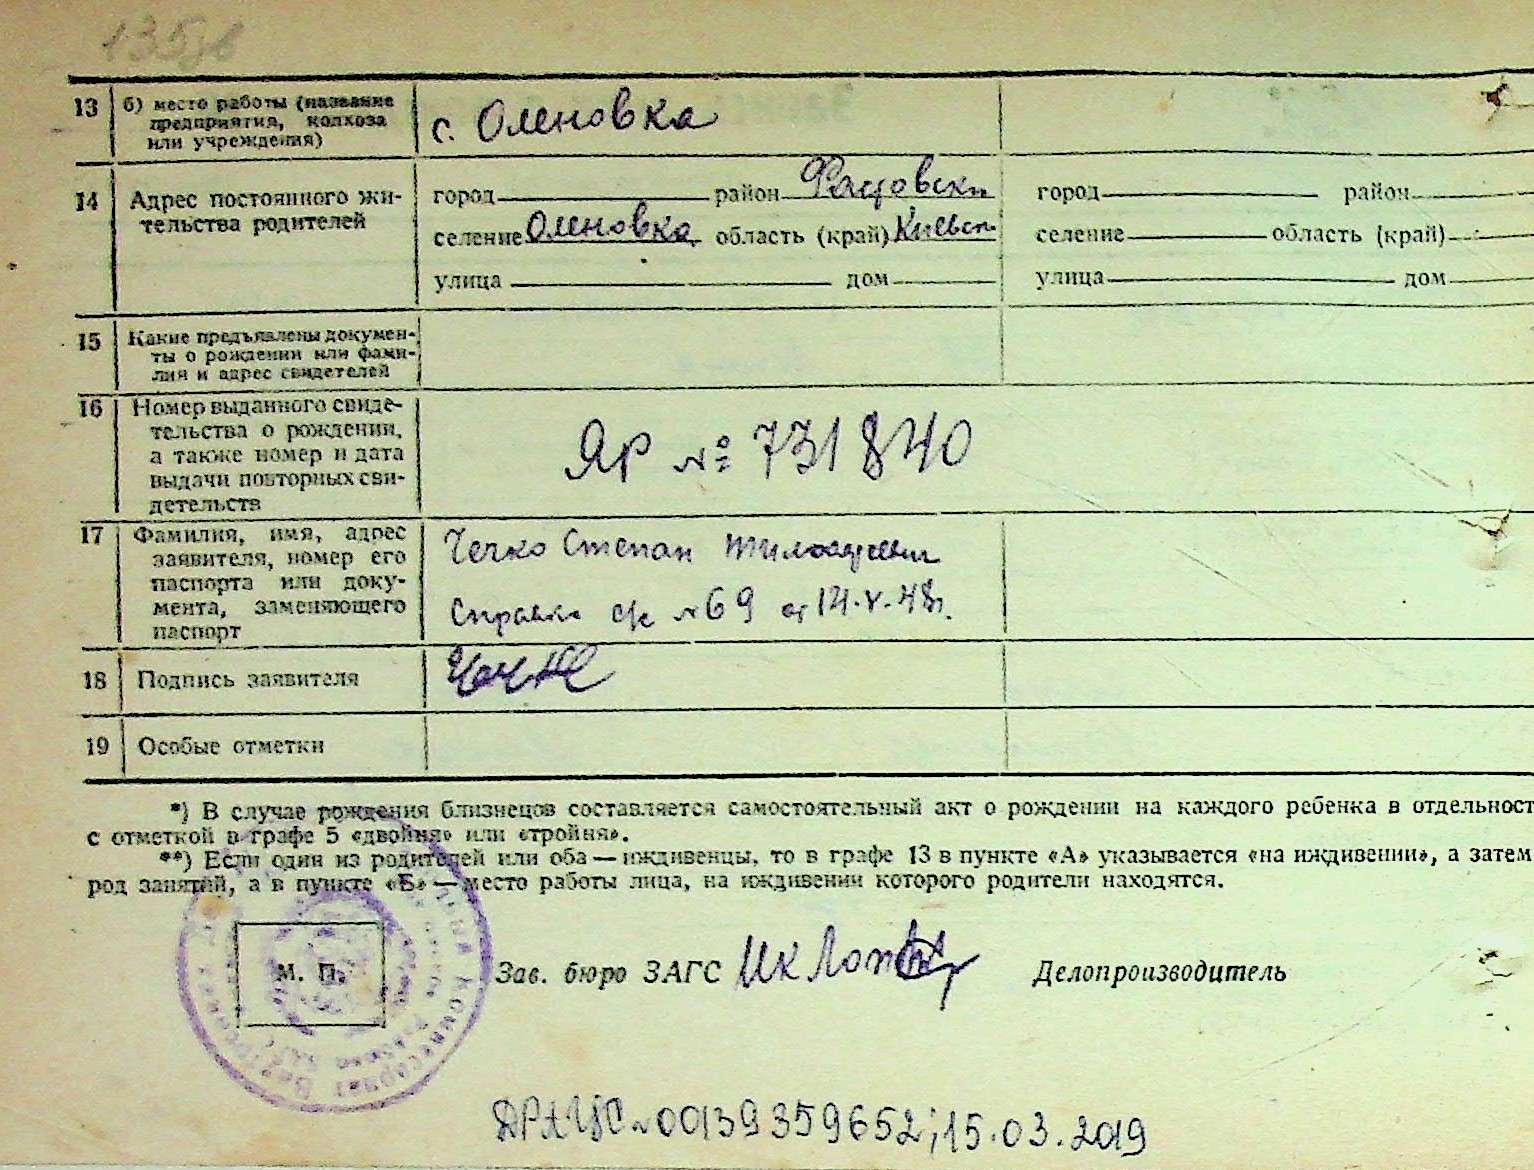 13 б) место работы (название
предприятия, колхоза
или учреждения)
с. Оленовка
14 Адрес постоянного жи-
тельства родителей
город район Фастовски
селение Оленовка область (край) Киевск
улица дом
город район
селение область (край)
улица дом
15 Какие предъявлены докумен-
ты о рождении или фами-
лия и адрес свидетелей
16 Номер выданного свиде-
тельства о рождении,
а также номер и дата
выдачи повторных сви-
детельств
ЯР № 731840
17 Фамилия, имя, адрес
заявителя, номер его
паспорта или доку-
мента, заменяющего
паспорт
Чечко Степан
Справка с/с № 69 от 14.V.48г.
18 Подпись заявителя
19 Особые отметки
*) В случае рождения близнецов составляется самостоятельный акт о рождении на каждого ребенка в отдельност
с отметкой в графе 5 «двойня» или «тройня».
**) Если один из родителей или оба — иждивенцы, то в графе 13 в пункте «А» указывается «на иждивении», а затем
род занятий, а в пункте «Б» — место работы лица, на иждивении которого родители находятся.
М. П.
Зав. бюро ЗАГС
Делопроизводитель
ДРАЦС № 00139359652; 15.03.2019